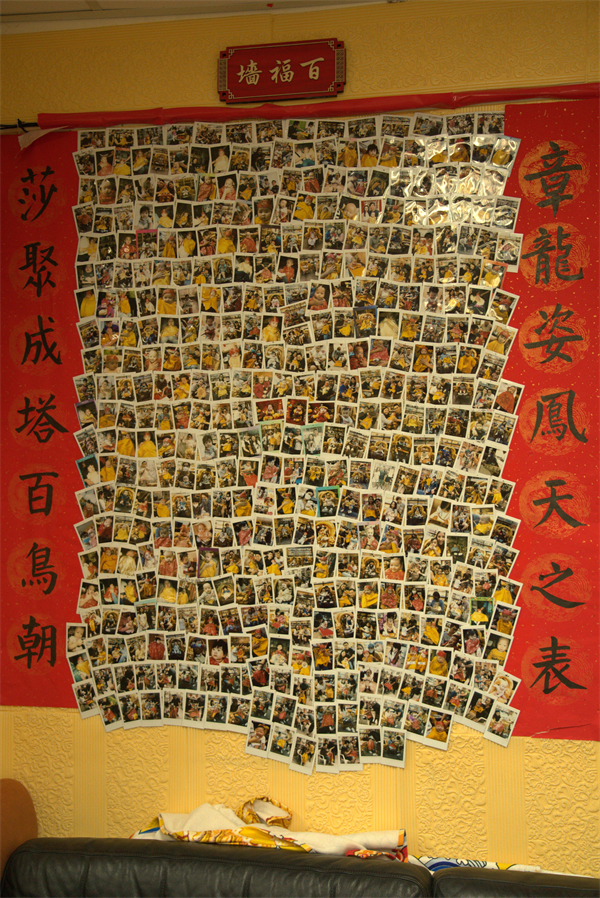 百福墻
章龍姿鳳天之表
莎聚成塔百鳥朝